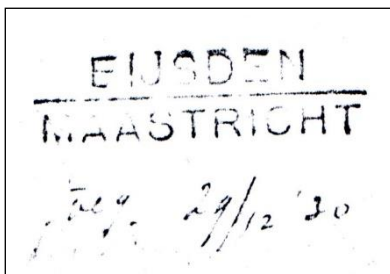 EIJSDEN
MAASTRICHT
29/12 '30